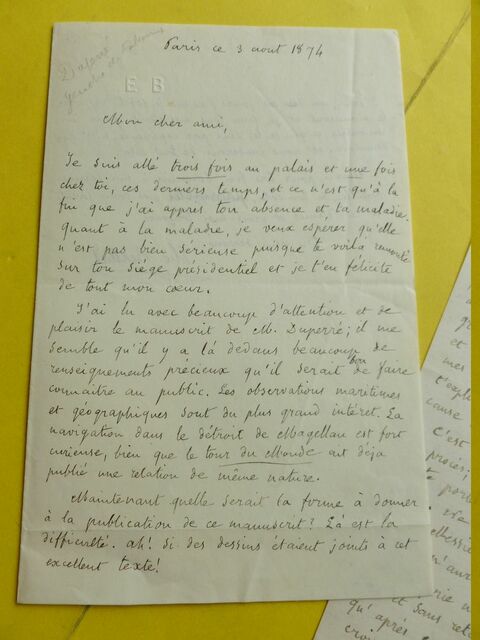 Paris ce 3 aout 1874
gendre de
E B
Mon cher ami,
Je suis allé trois fois au palais et une fois
chez toi, ces derniers temps, et ce n'est qu'à la
fin que j'ai appris ton absence et ta maladie.
quant à la maladie, je veux espérer qu'elle
n'est pas bien sérieuse puisque te voilà remonté
sur ton siége présidentiel et je t'en félicite
de tout mon cœur.
J'ai lu avec beaucoup d'attention et de
plaisir le manuscrit de M. Duperré; il me
semble qu'il y a là dedans beaucoup de
renseignements précieux qu'il serait bon de faire
connaitre au public. Les observations maritimes
et géographiques sont du plus grand intéret. La
navigation dans le détroit de Magellan est fort
curieuse, bien que le tour du Monde ait déja
publié une relation de même nature.
Maintenant quelle serait la forme à donner
à la publication de ce manuscrit? Là est la
difficulté. ah! si des dessins étaient joints à cet
excellent texte!
et mes
t'expli
cause
c'est
procès;
porte
vie
Messie
n'aur
nie n
et sans rete
qu'après
croi